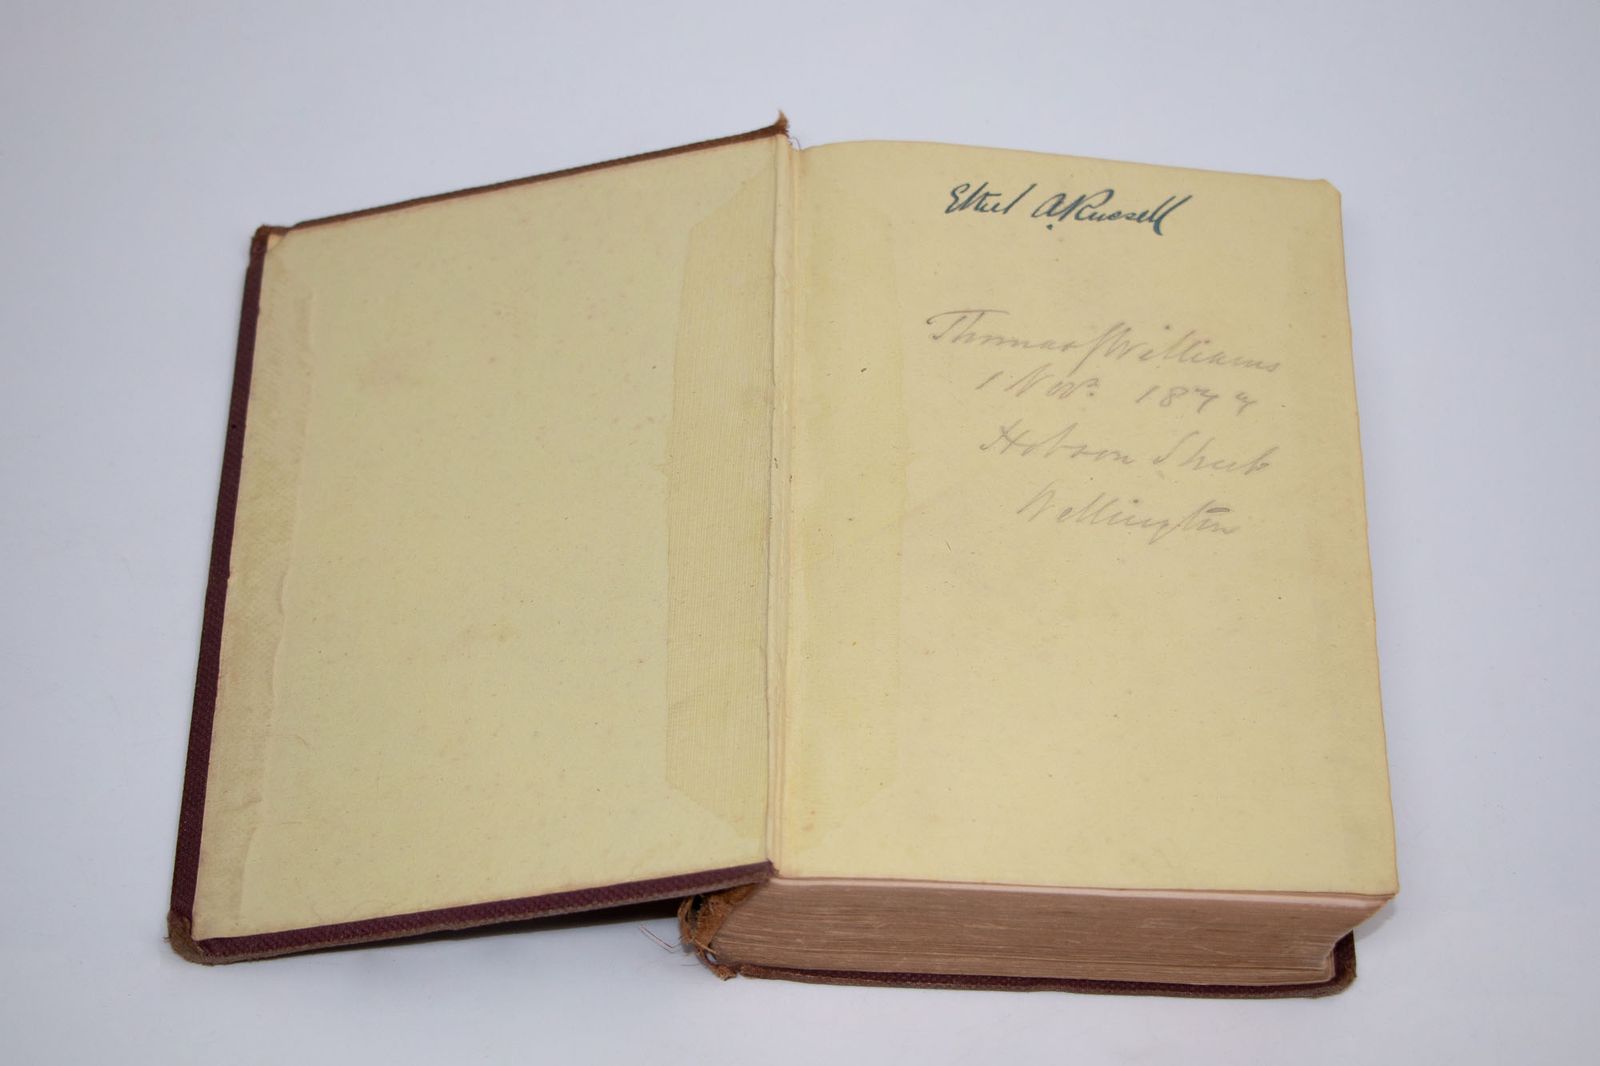 Ethel A. Russell
Thomas J Williams
1 Novr. 1877
Hobson Street
Wellington